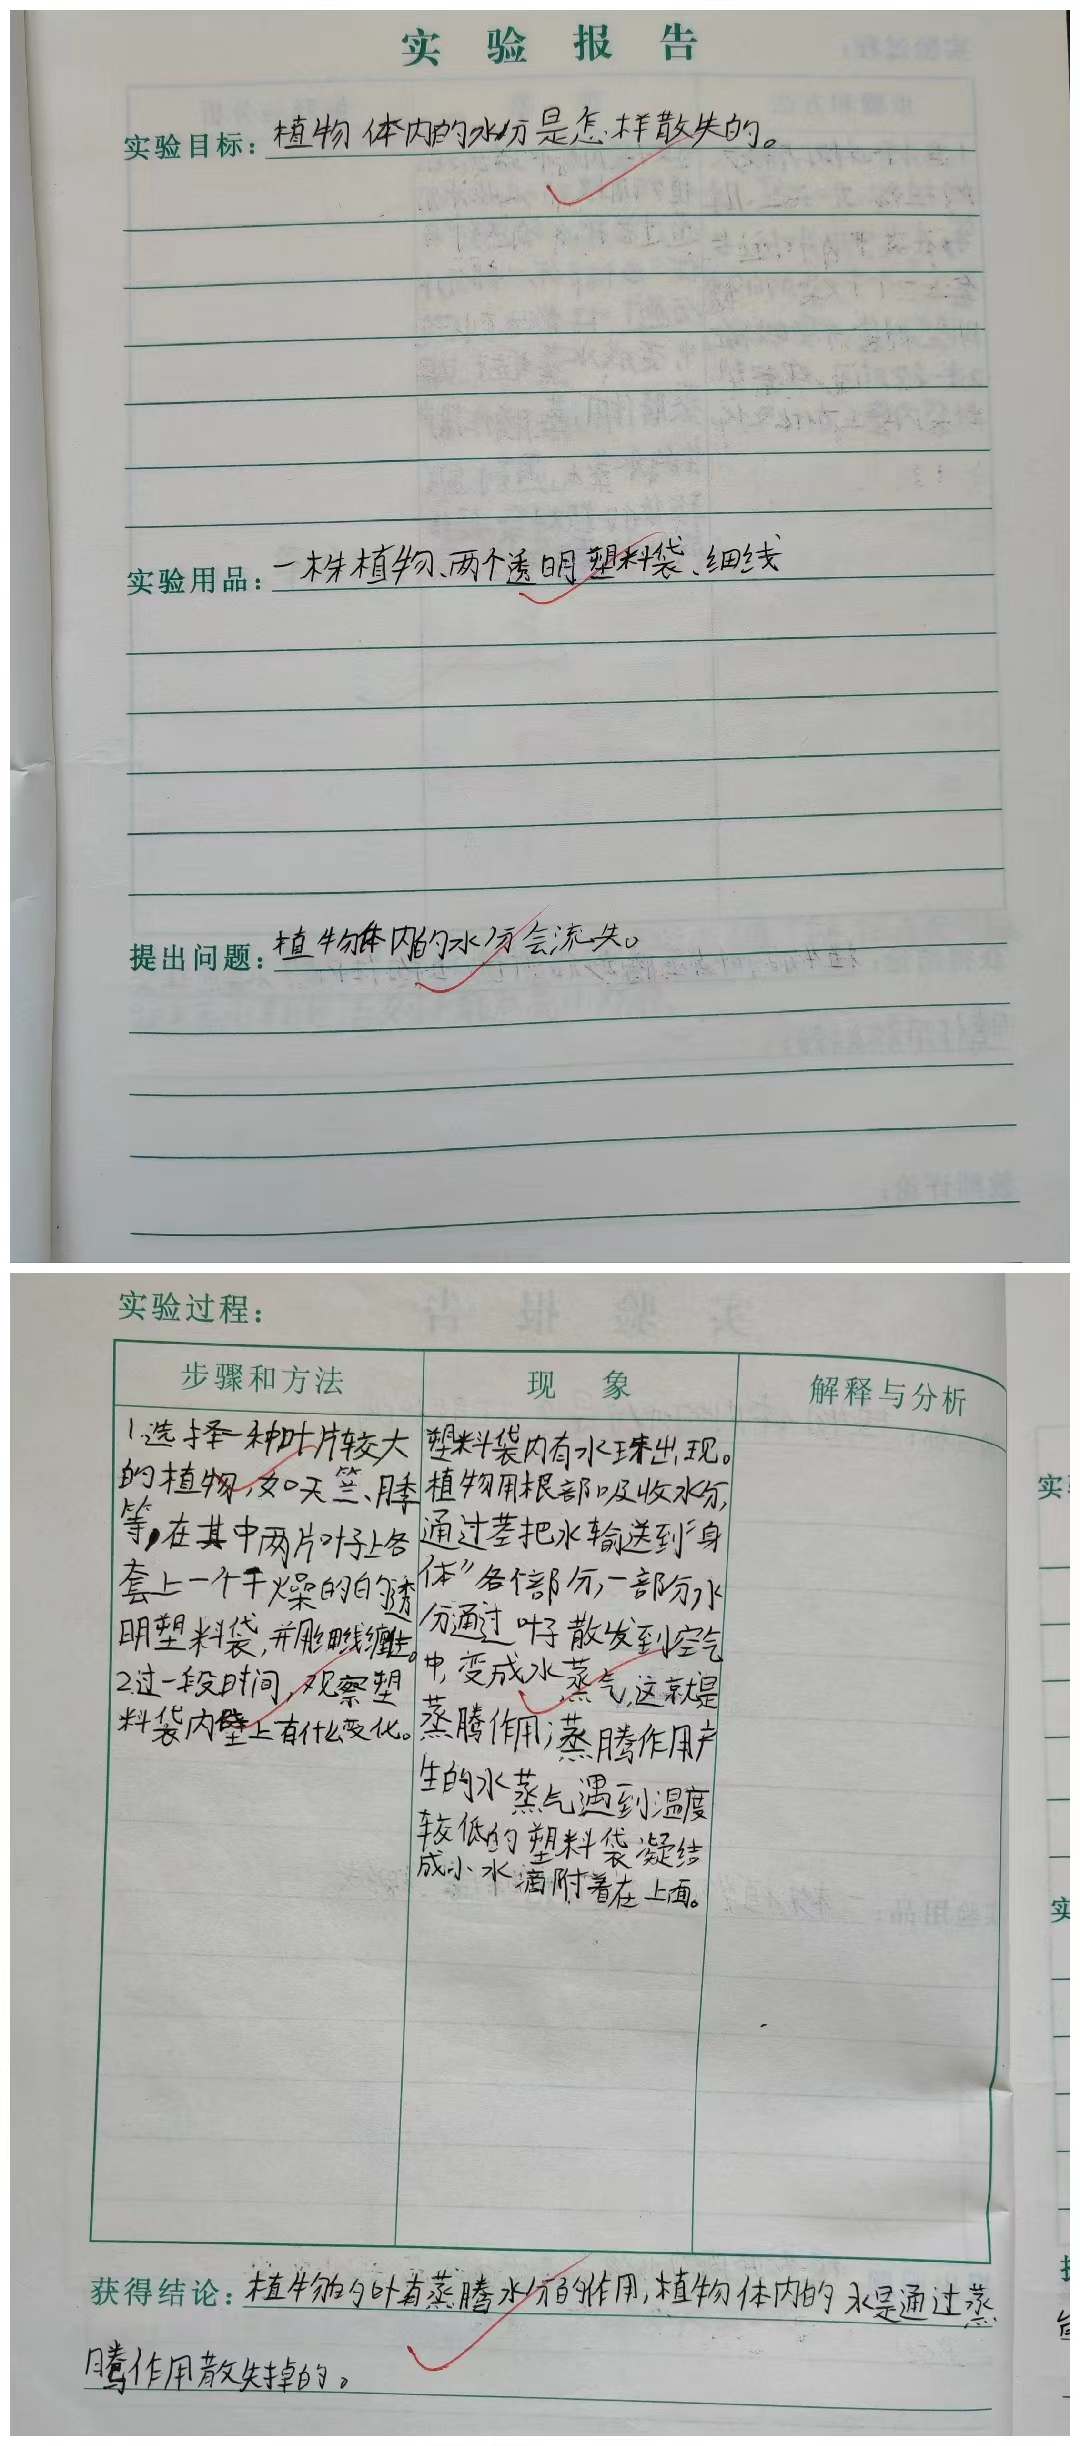 实验报告
实验目标：植物体内的水分是怎样散失的。
实验用品：一株植物、两个透明塑料袋、细线
提出问题：植物体内的水分会流失。
实验过程：
步骤和方法
1.选择一种叶片较大
的植物，如天竺、月季
等，在其中两片叶子上各
套上一个干燥的的透
明塑料袋，并用细线缠住。
2.过一段时间，观察塑
料袋内壁上有什么变化。
现象
塑料袋内有水珠出现。
植物用根部吸收水分，
通过茎把水输送到“身
体”各个部分，一部分水
分通过叶子散发到空气
中，变成水蒸气，这就是
蒸腾作用；蒸腾作用产
生的水蒸气遇到温度
较低的塑料袋凝结
成小水滴附着在上面。
解释与分析
获得结论：植物的叶有蒸腾水分的作用，植物体内的水是通过蒸
腾作用散失掉的。
实